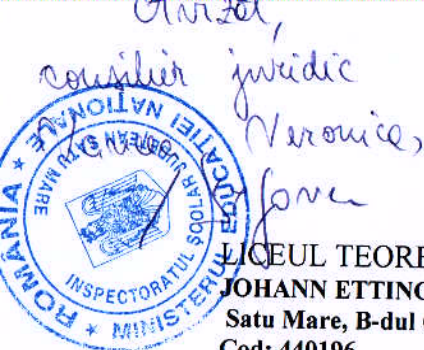 Avizat,
consilier juridic
Veronica
ROMANIA * MINISTERUL EDUCAȚIEI NAȚIONALE *
INSPECTORATUL ȘCOLAR JUDEȚEAN SATU MARE
LICEUL TEORE
JOHANN ETTING
Satu Mare, B-dul
Cod: 440196